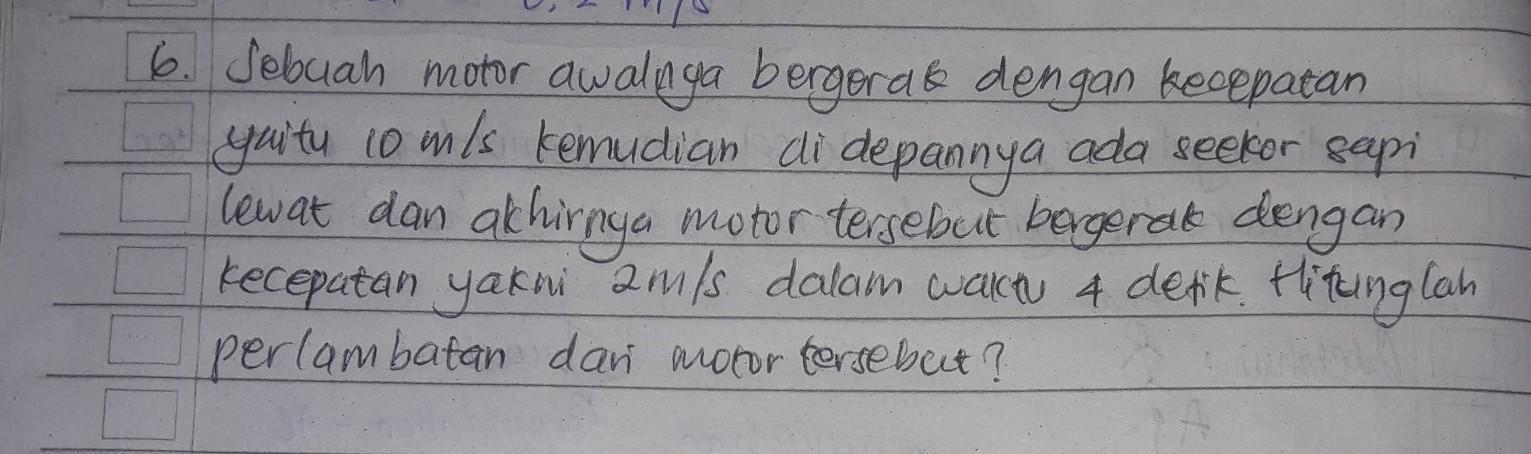 6. Sebuah motor awalnya bergerak dengan kecepatan
yaitu 10 m/s kemudian di depannya ada seekor sapi
lewat dan akhirnya motor tersebut bergerak dengan
kecepatan yakni 2 m/s dalam waktu 4 detik. Hitunglah
perlambatan dari motor tersebut?